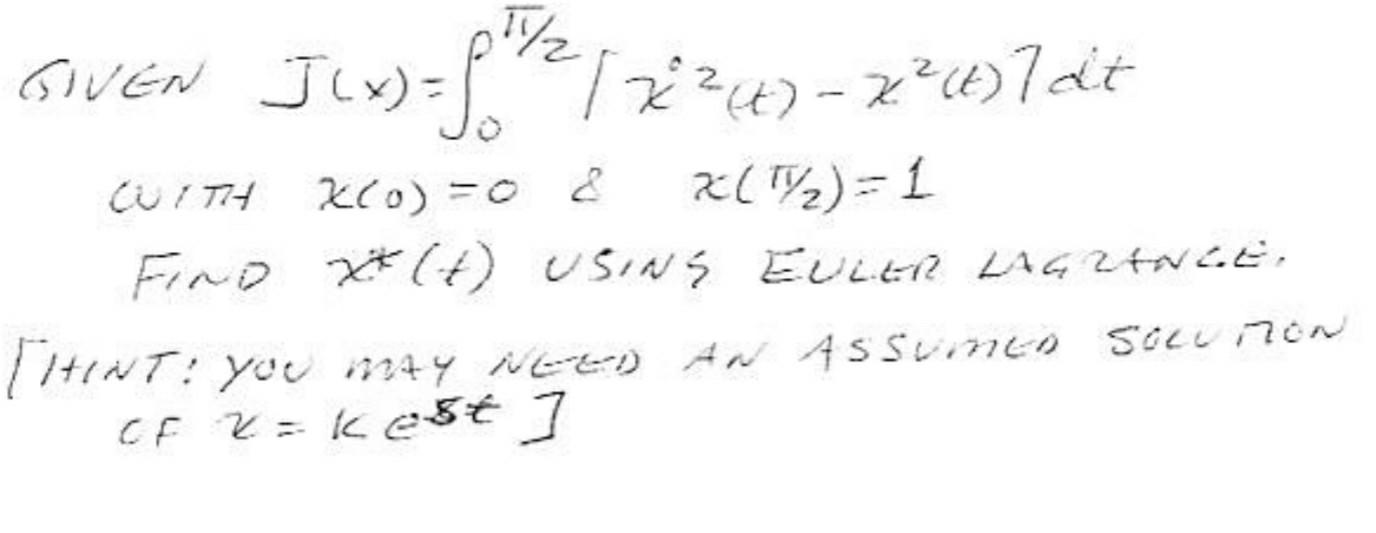 GIVEN J(x)=∫₀^π/2 [ẋ²(t) - x²(t)] dt
WITH x(0)=0 & x(π/2)=1
FIND x*(t) USING EULER LAGRANGE.
[HINT: YOU MAY NEED AN ASSUMED SOLUTION
OF x = K e^st ]